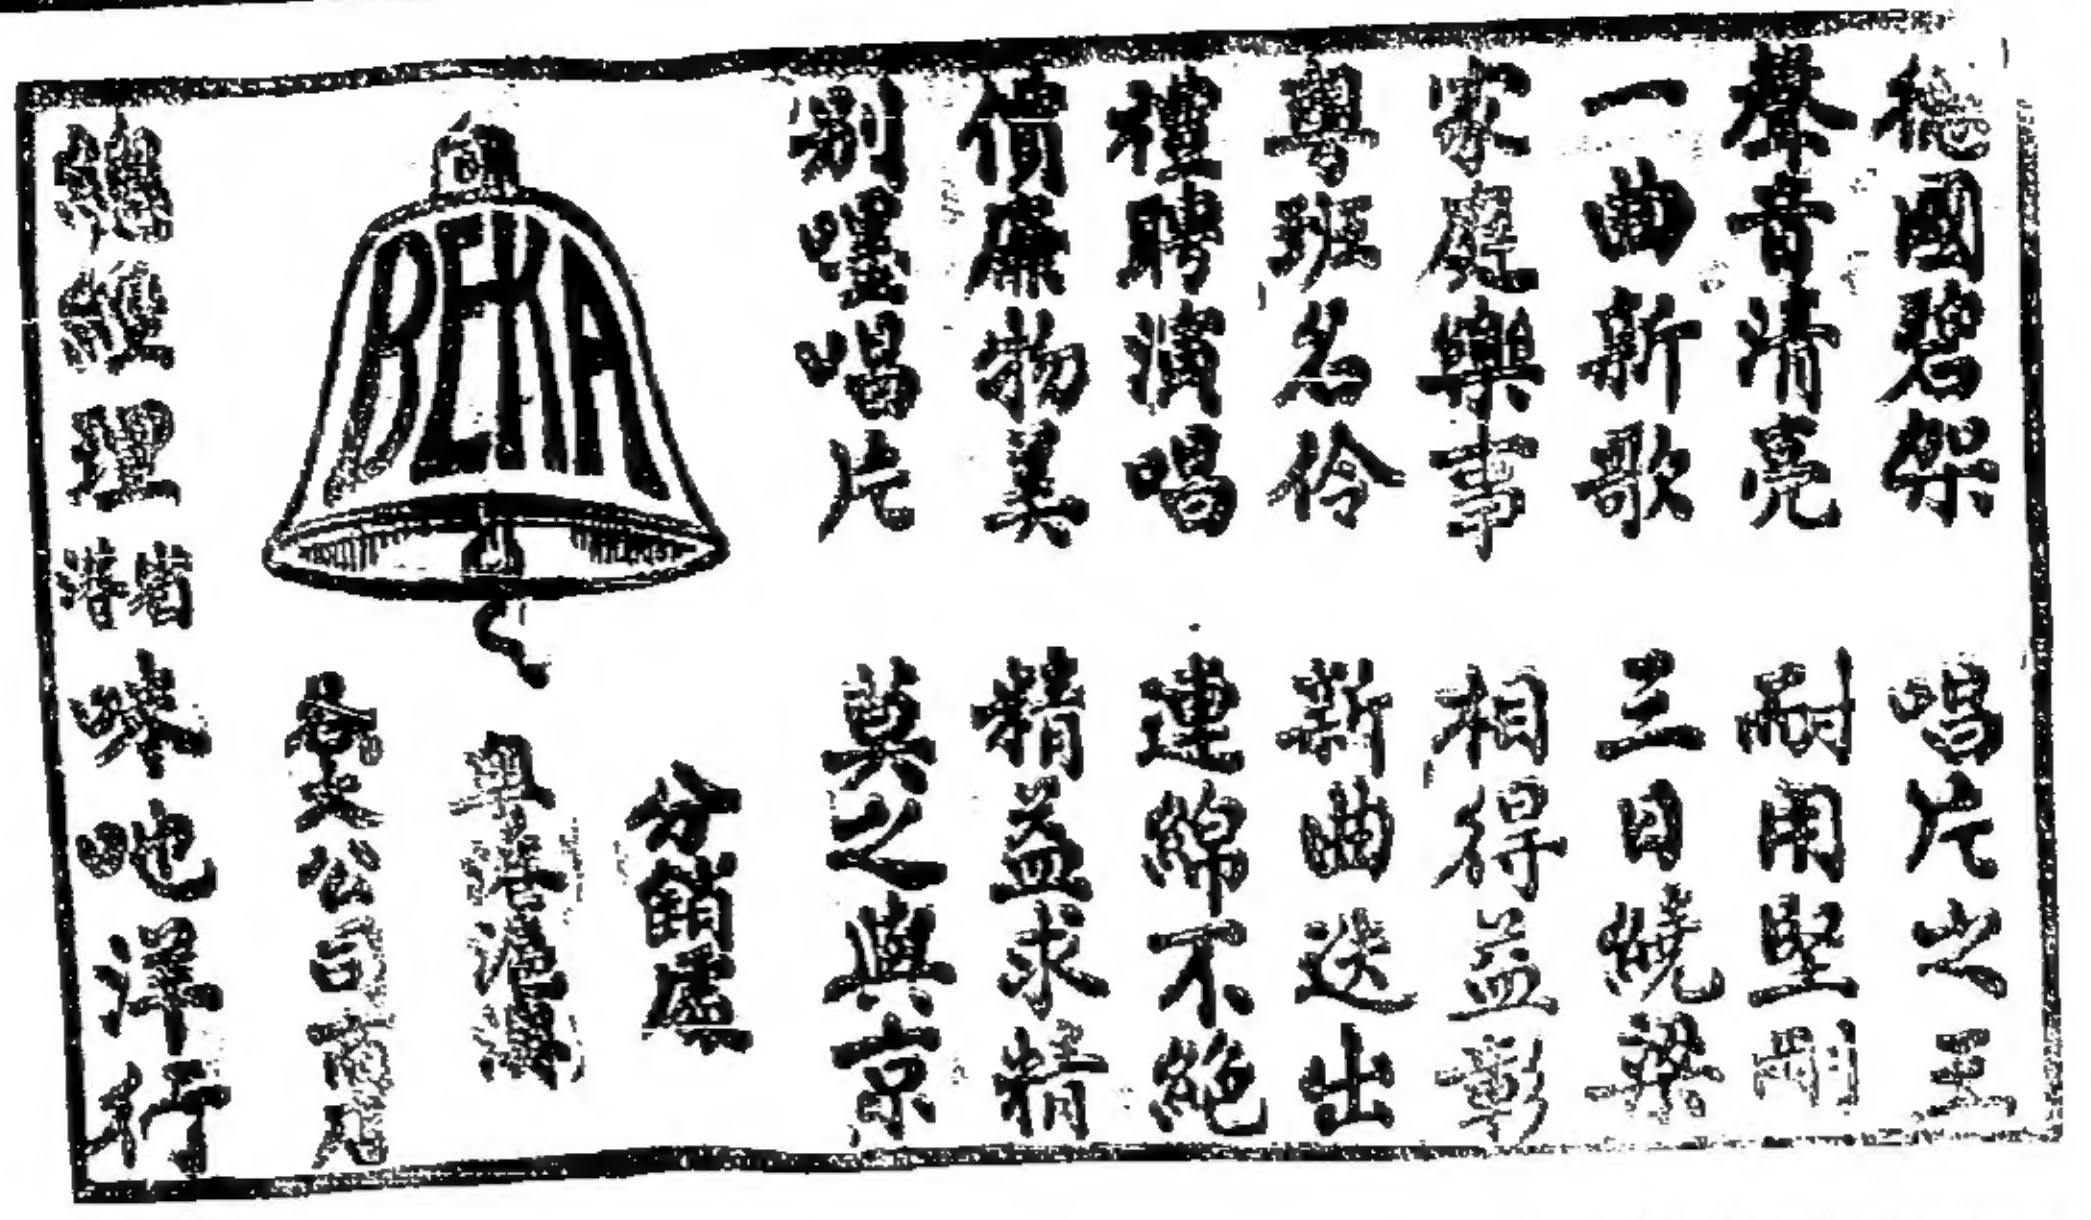 德國碧架 唱片之王
聲音清亮 耐用堅剛
一曲新歌 三日繞梁
家庭樂事 相得益彰
粵班名伶 新曲迭出
禮聘演唱 連綿不絕
價廉物美 精益求精
別嘜唱片 莫之與京
分銷處
粵港滬濱
各大公司
BEKA
總經理 省港 咪吔洋行